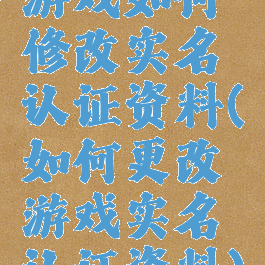 游戏如何
修改实名
认证资料(
如何更改
游戏实名
认证资料)